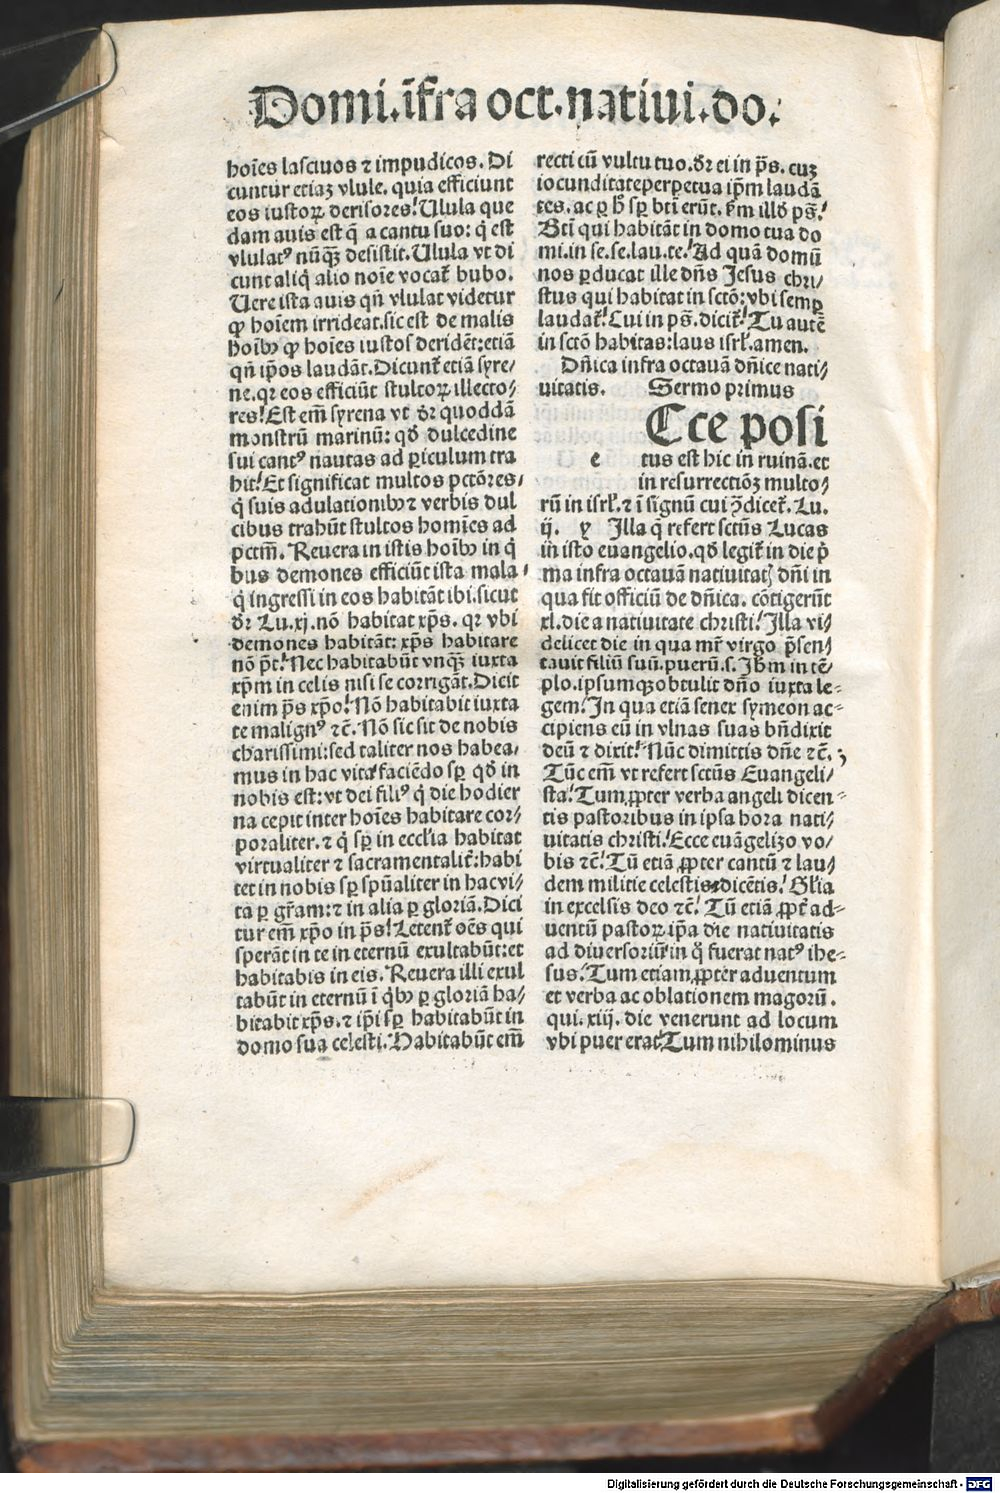 Domi.īfra oct.natiui.do.
hoīes lasciuos ⁊ impudicos. Di
cuntur etiaꝫ vlule. quia efficiunt
eos iustoꝝ derisores. Ulula que
dam auis est q̄ a cantu suo: q̇ est
vlulatꝰ nūq̄ꝫ desistit. Ulula vt di
cunt aliq̇ alio noīe vocat̄ bubo.
Uere ista auis qn̄ vlulat videtur
ꝙ hoīem irrideat. sic est de malis
hoībꝫ ꝙ hoīes iustos deridēt: etiā
qn̄ ip̄os laudāt. Dicunt̄ etiā syre/
ne. qꝛ eos efficiūt stultoꝝ illecto/
res. Est em̄ syrena vt dr̄ quoddā
monstrū marinū: qď dulcedine
sui cantꝰ nautas ad ꝑiculum tra
hit. Et significat multos pctōres/
q̇ suis adulationibꝫ ⁊ verbis dul
cibus trahūt stultos homīes ad
pctm̄. Reuera in istis hoībꝫ in q̇
bus demones efficiūt ista mala/
q̇ ingressi in eos habitāt ibi. sicut
dr̄ Lu.xj. nō habitat xp̄s. qꝛ vbi
demones habitāt: xp̄s habitare
nō p̄t. Nec habitabūt vnq̄ꝫ iuxta
xp̄m in celis nisi se corrigāt. Dicit
enim p̄s xp̄o. Nō habitabit iuxta
te malignꝰ ⁊c̄. Nō sic sit de nobis
charissimi: sed taliter nos habea/
mus in hac vita faciēdo sꝑ qď in
nobis est: vt dei filiꝰ q̇ die hodier
na cepit inter hoīes habitare cor/
poraliter. ⁊ q̇ sꝑ in ecclīa habitat
virtualiter ⁊ sacramentalit̄: habi
tet in nobis sꝑ spūaliter in hac vi/
ta ꝑ gr̄am: ⁊ in alia ꝑ gloriā. Dici
tur em̄ xp̄o in p̄s. Letent̄ oēs qui
sperāt in te in eternū exultabūt: et
habitabis in eis. Reuera illi exul
tabūt in eternū ī q̇bꝫ ꝑ gloriā ha/
bitabit xp̄s. ⁊ ip̄i sꝑ habitabūt in
domo sua celesti. Habitabūt em̄
recti cū vultu tuo. dr̄ ei in p̄s. cuꝫ
iocunditate perpetua ip̄m laudā
tes. ac ꝑ h̄ sꝑ btī erūt. km̄ illď ps̄.
Btī qui habitāt in domo tua do
mi. in se. se. lau. te. Ad quā domū
nos ꝑducat ille dn̄s Jesus chri/
stus qui habitat in sctō: vbi semꝑ
laudat̄. Cui in ps̄. dicit̄. Tu autē
in sctō habitas: laus isrl̄. amen.
Dn̄ica infra octauā dn̄ice nati/
uitatis. Sermo primus
Cce posi
e tus est hic in ruinā. et
in resurrectiōꝫ multo/
rū in isrl̄. ⁊ ī signū cui ꝯdicet̄. Lu.
ij. y Illa q̄ refert sctūs Lucas
in isto euangelio. qď legit̄ in die p̄
ma infra octauā natiuitatꝭ dn̄i in
qua fit officiū de dn̄ica. cōtigerūt
xl. die a natiuitate christi. Illa vi/
delicet die in qua mr̄ virgo p̄sen/
tauit filiū suū. puerū. s. Jhm in tē/
plo. ipsumqꝫ obtulit dn̄o iuxta le-
gem. In qua etiā senex symeon ac-
cipiens eū in vlnas suas bn̄dixit
deū ⁊ dixit. Nūc dimittis dn̄e ⁊c̄.
Tūc em̄ vt refert sctūs Euangeli/
sta. Tum ꝓpter verba angeli dicen-
tis pastoribus in ipsa hora nati/
uitatis christi. Ecce euāgelizo vo/
bis ⁊c̄. Tū etiā ꝓpter cantū ⁊ lau/
dem militie celestis dicētis. Glīa
in excelsis deo ⁊c̄. Tū etiā ꝓpt̄ ad-
uentū pastoꝝ ip̄a die natiuitatis
ad diuersoriū in q̊ fuerat natꝰ ihe-
sus. Tum etiam ꝓpter aduentum
et verba ac oblationem magorū.
qui. xiij. die venerunt ad locum
vbi puer erat. Tum nihilominus
Digitalisierung gefördert durch die Deutsche Forschungsgemeinschaft - DFG